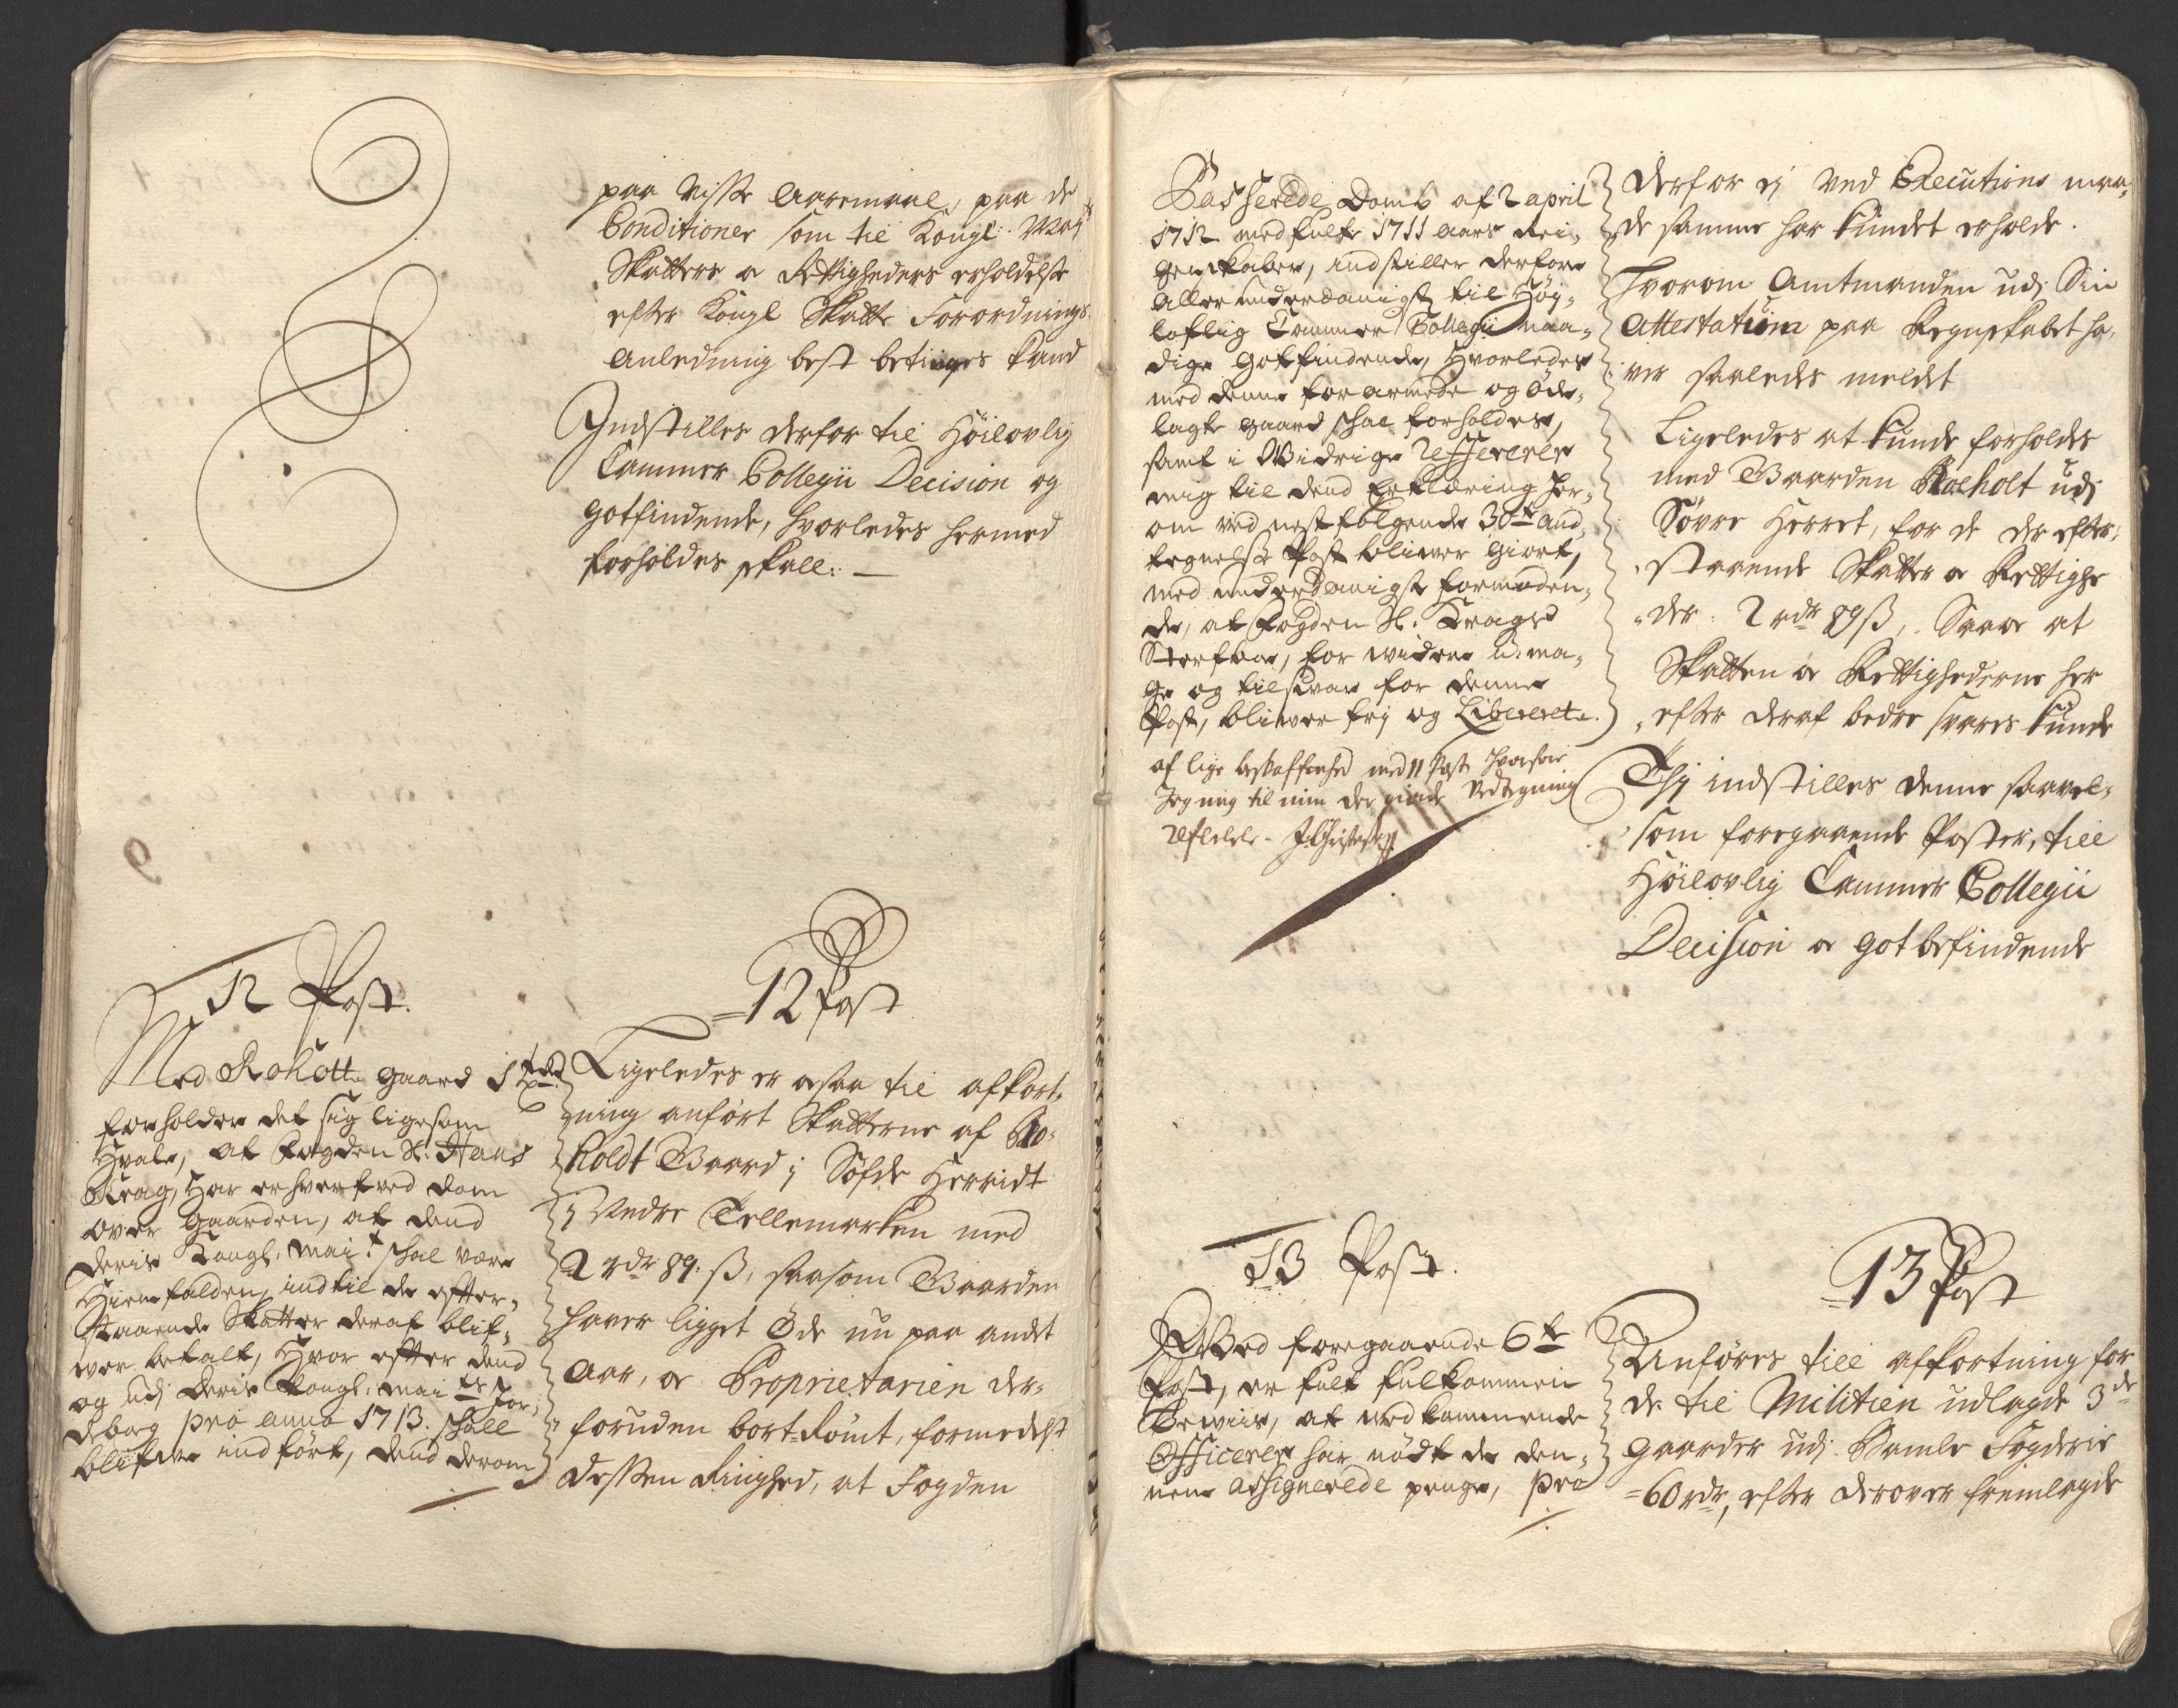 paa Visse Aaremaal, paa de
Conditioner som til Kongl: May
Skatters a Rettigheders erholdelse
efter Kongl Skatte Forordnings
Anledning best betinges kand
Indstilles derfor til Höilovlig
Cammer Collegii Decision og
gotfindende, hvorledes hermed
forholdes skall: —
12 Post.
Med Roholtt gaard 1
forholder det sig ligesom
Hvale, at fogden Sl. Hans
Krag, har erhverfved dom
over gaarden, at dend
deris Kongl. Mai:t skal være
Hiemfalden, indtil de effter-
staaende Skatter deraf blif-
ver betalt, hvor effter dend
og udj deris Kongl. Mai:ts Jor-
debog pro anno 1713. skall
blifwe indfört, dend derom
12 Post
Ligeledes er ogsaa til afkort-
ning anfört Skatterne af Ro-
holdt Gaard i Söfde Herridt
i Nedre Tellemarken med
2 rdr 89: ß, saasom Gaarden
haver ligget Öde nu paa andet
Aar, a Proprietarien der-
foruden bort-Römt, formedelst
dessen Ringhed, at Fogden
Passerede Domb af 2 april
1712 medfulte 1711 aars Rei-
genskaber, indstiller derfore
allerunderdanigst til Höy-
loflig Cammer Collegii naa-
dige gotfindende, hvorledes
med denne forarmede og öde-
lagte gaard skal forholdes,
samt i Widrige Refererer
mig til dend Erklæring her-
om ved nestfölgende 30te And-
tegnelse Post bliwer giort,
med underdanigst formoden-
de, at fogden Sl. Krags
Sterfboe, for widere u-ma-
ge og tilsvar for denne
Post, bliwer frj og Libereret.
af lige beskaffenhed med 11 Post hvorfore
Jeg mig til min der giorde Vedtegning
Refferere. J Christensen
derfor ej ved Executions maa-
de samme har kundet erholde.
Hvorom Amtmanden udj Sin
Attestation paa Regnskabet ha-
ver saaledes meldt
Ligeledes at kunde forholdes
med Gaarden Roeholt udj
Sövre Herret, for de der efter-
staaende Skatter a Rettighe
der: 2 rdr 89 ß, Saa at
Skatten a Rettighederne her
efter deraf bedre svares kunde
Thj indstilles denne saavel-
som foregaaende Poster, till
Höilovlig Cammer Collegii
Decision a gotbefindende
13 Post.
Wed foregaaende 6te
Post, er fult fulkommen
Bewiis, at vedkommende
Officerer har nödt de den-
nem Assignerede penge, pro
13 Post
Anföres till afkortning for
de til Militien udlagde 3de
gaarder udj Bamle Fogderie
60 rdr, efter derover fremlagde